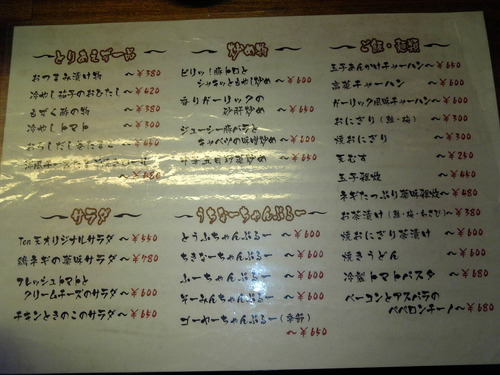 とりあえず一品
おつまみ漬け物 〜￥380
冷やし茄子のおひたし 〜￥420
もずく酢の物 〜￥380
冷やしトマト 〜￥300
〜￥480
炒め物
ピリッ!豚トロと
シャキッともやし炒め 〜￥600
香りガーリックの
砂肝炒め 〜￥650
ジューシー豚バラと
キャベツの味噌炒め 〜￥600
〜￥650
ご飯・麺類
玉子あんかけチャーハン〜￥650
高菜チャーハン 〜￥600
ガーリック風味チャーハン〜￥600
おにぎり(鮭・梅) 〜￥300
焼おにぎり 〜￥300
天むす 〜￥250
玉子雑炊 〜￥450
ネギたっぷり薬味雑炊〜￥480
お茶漬け(鮭・梅・わさび)〜￥380
焼おにぎり茶漬け 〜￥600
焼きうどん 〜￥600
冷製トマトパスタ 〜￥680
ベーコンとアスパラの
ペペロンチーノ〜￥680
サラダ
Ten王オリジナルサラダ 〜￥550
鶏ネギの薬味サラダ 〜￥780
フレッシュトマトと
クリームチーズのサラダ 〜￥600
チキンときのこのサラダ 〜￥650
うちなーちゃんぷるー
とうふちゃんぷるー 〜￥600
ちきなーちゃんぷるー 〜￥600
ふーちゃんぷるー 〜￥600
そーみんちゃんぷるー 〜￥600
ゴーヤーちゃんぷるー(季節)
〜￥650